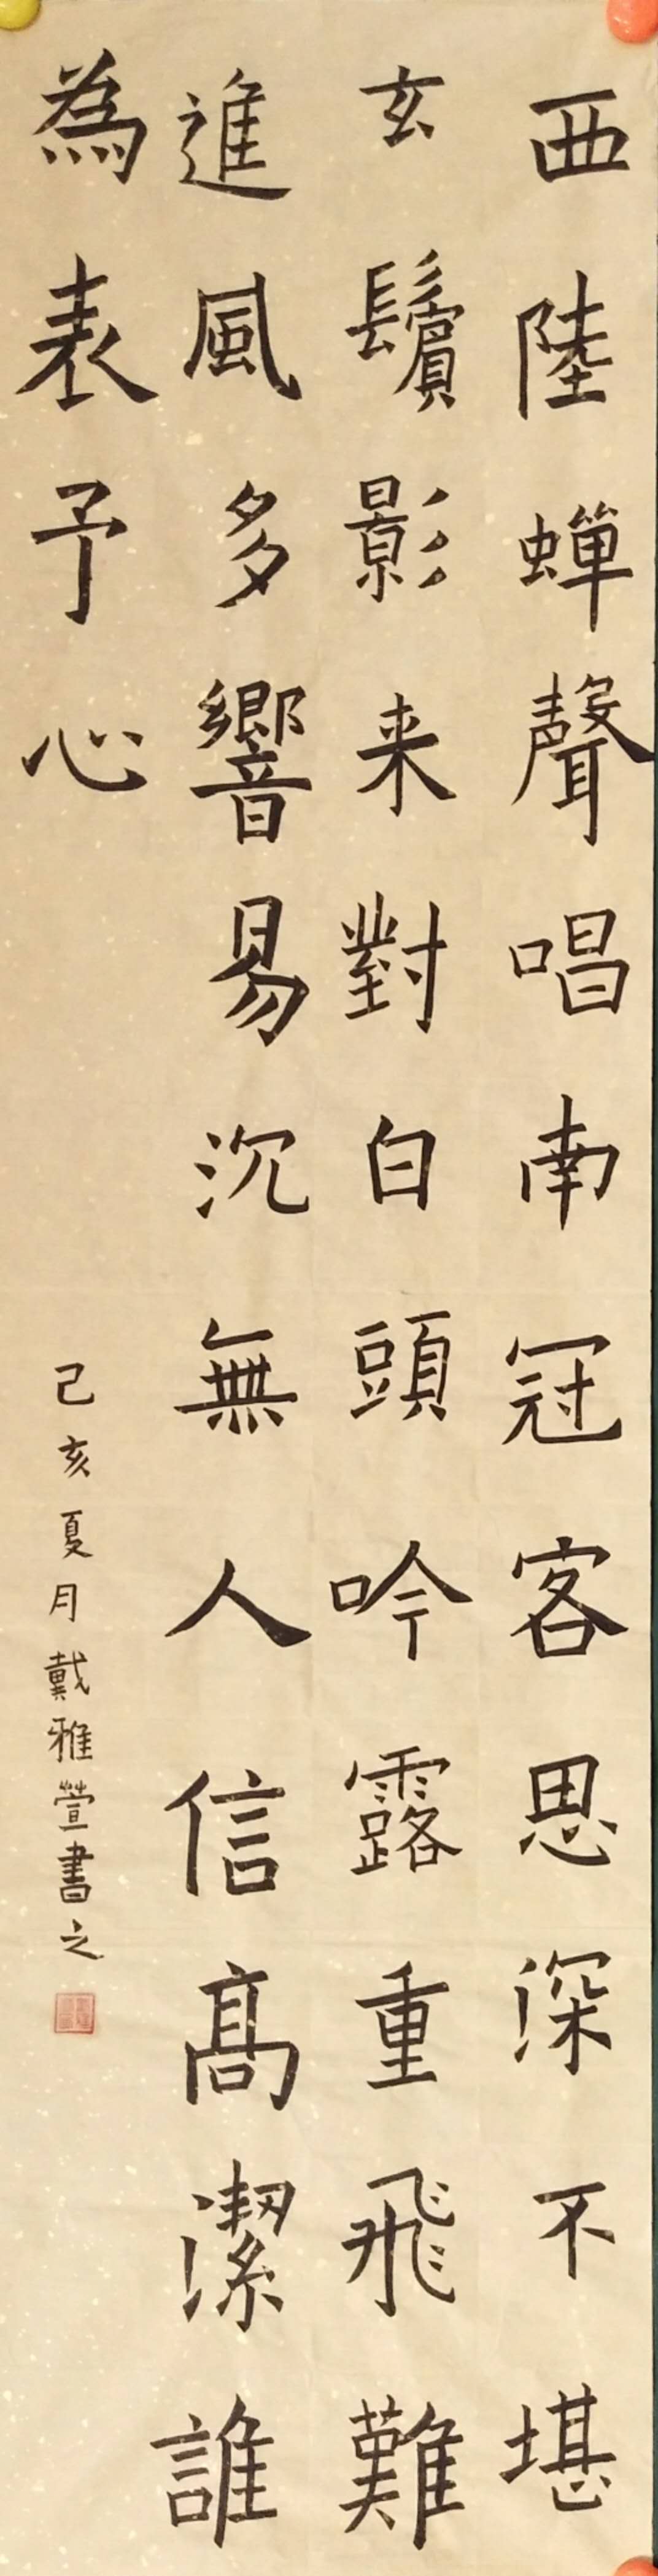 西陸蟬聲唱南冠客思深不堪
玄鬢影来對白頭吟露重飛難
進風多響易沉無人信高潔誰
為表予心
己亥夏月戴雅萱書之